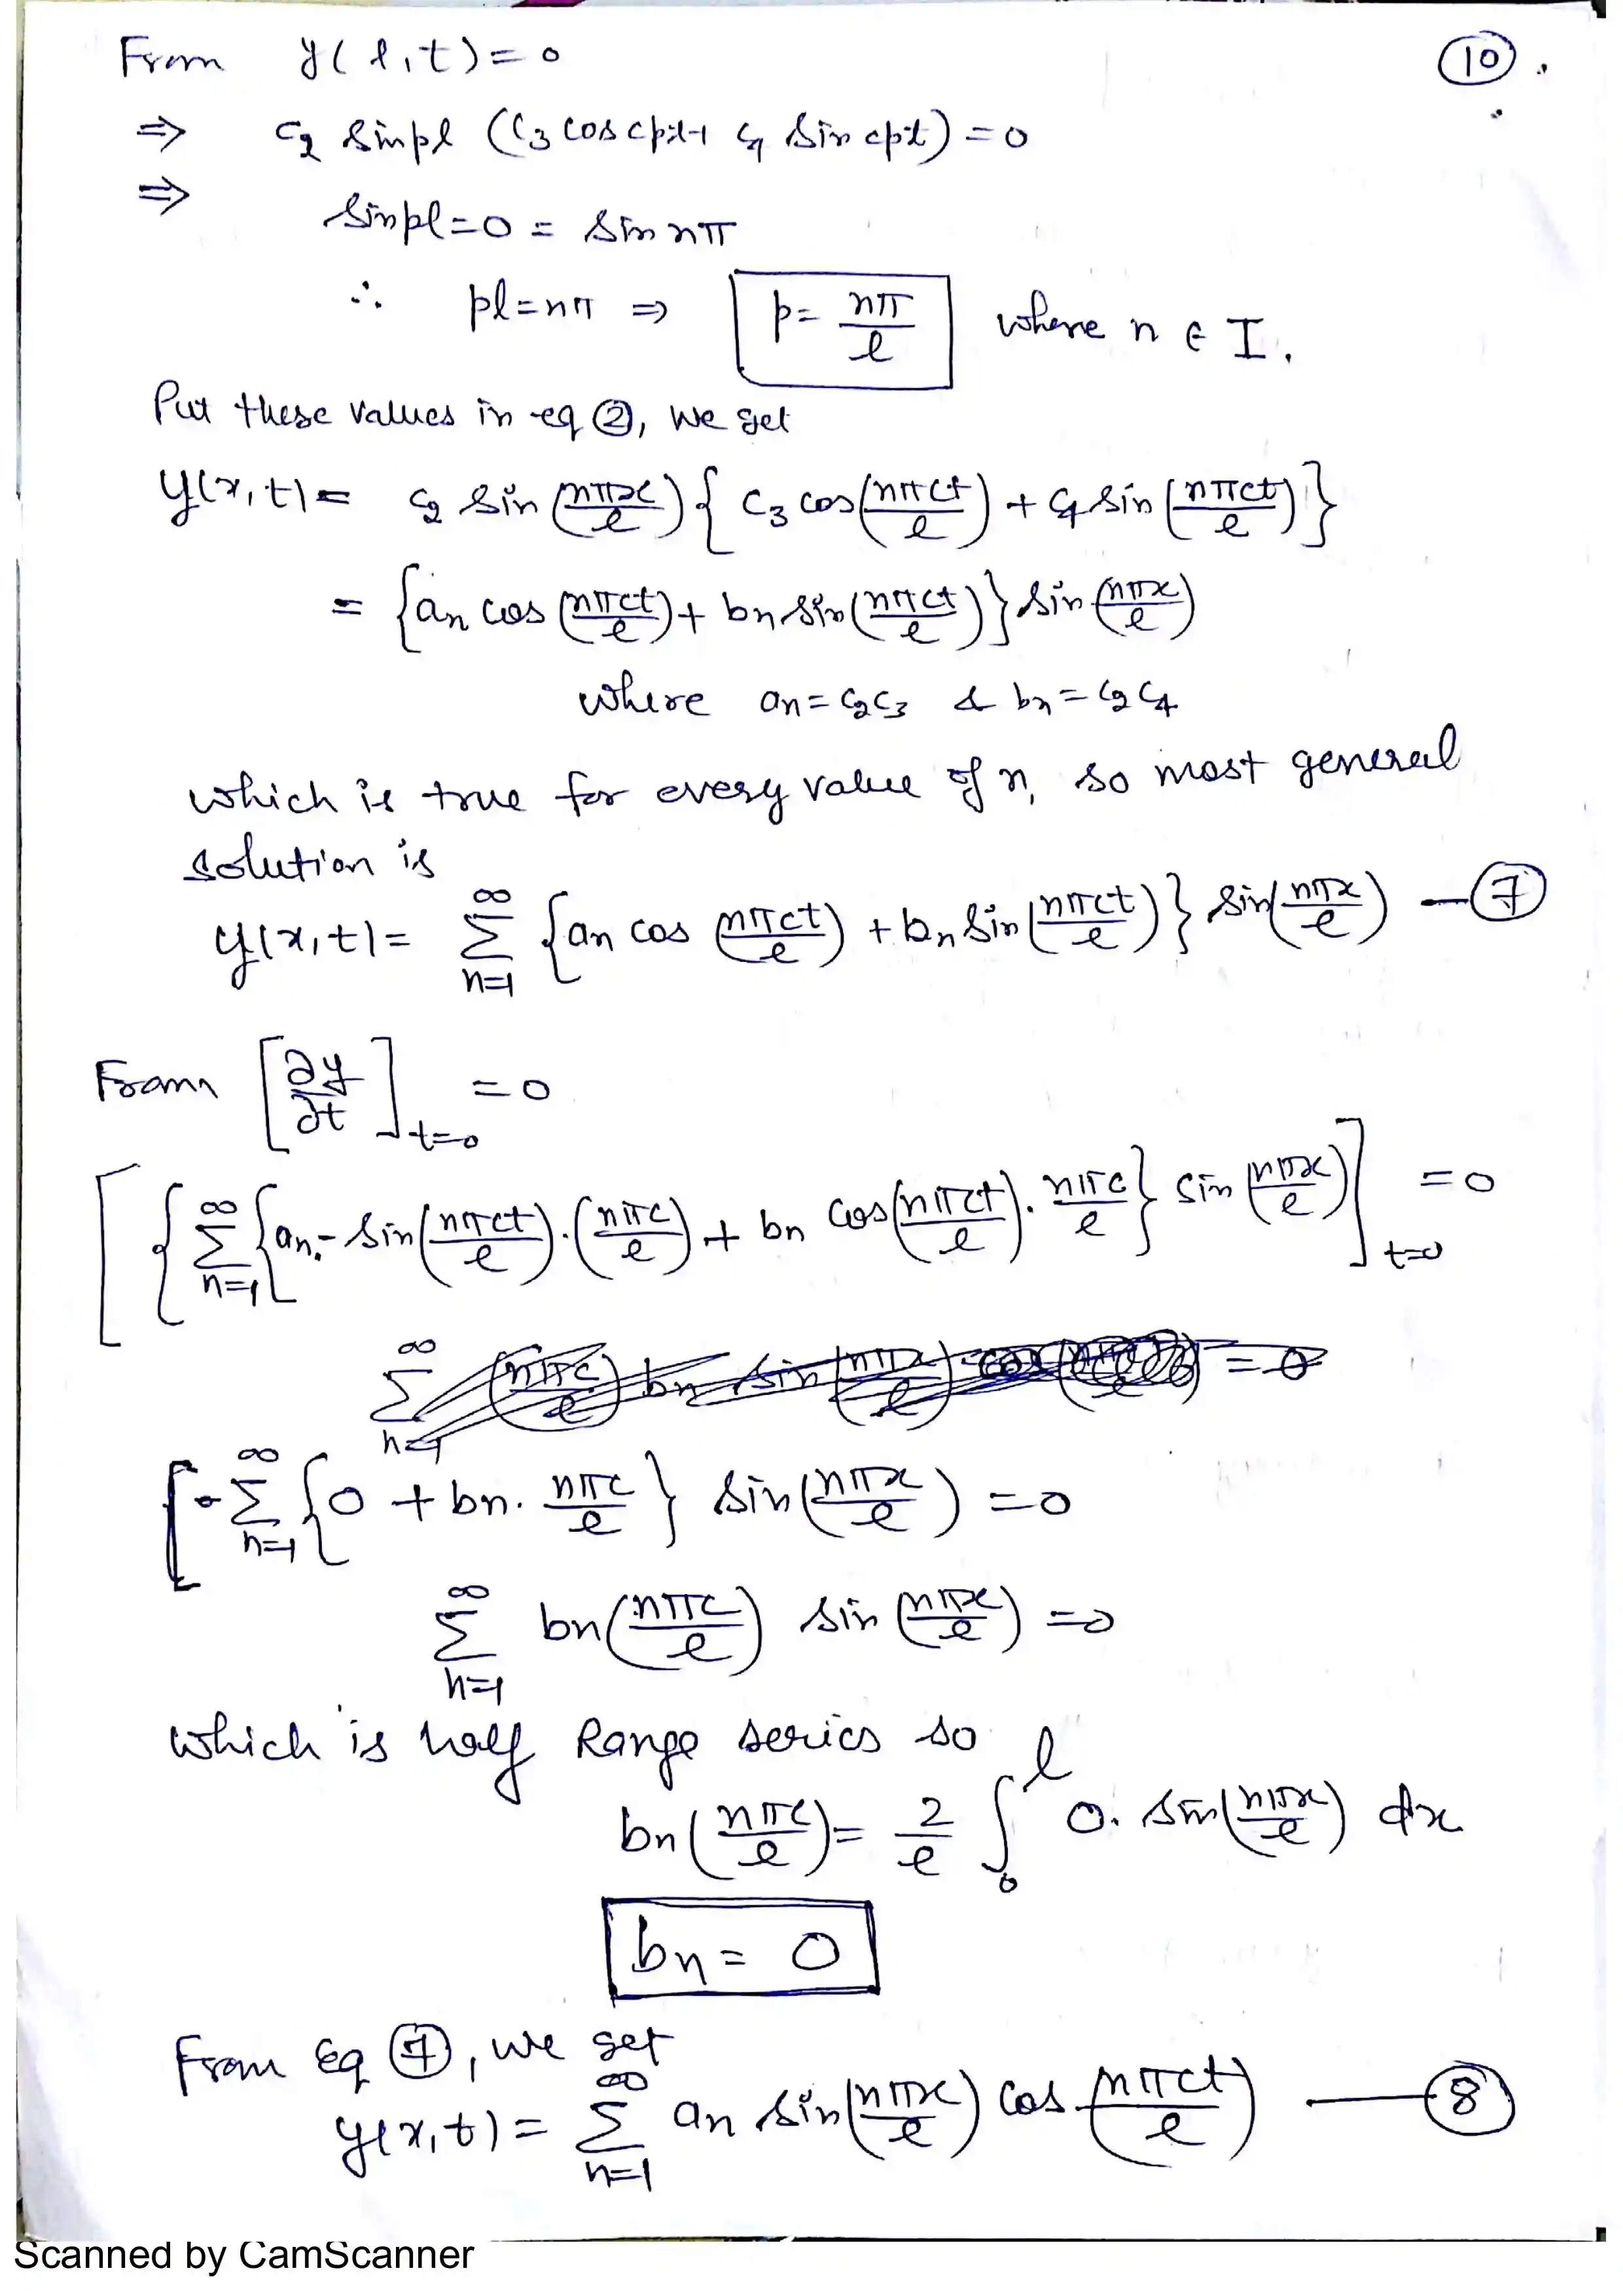 From y(l,t)=0
(10).
⇒ c2 sinpl (c3 cos cpt + c4 sin cpt) =0
⇒ sinpl=0 = sin nπ
∴ pl=nπ ⇒ p= nπ/l where n ∈ I.
Put these values in eq (2), we get
y(x,t)= c2 sin(nπx/l){ c3 cos(nπct/l) + c4 sin(nπct/l)}
= {an cos(nπct/l)+ bn sin(nπct/l)} sin(nπx/l)
where an=c2c3 & bn=c2c4
which is true for every value of n, so most general
solution is
y(x,t)= ∞ Σ n=1 {an cos(nπct/l) +bn sin(nπct/l)} sin(nπx/l) —(7)
From [∂y/∂t]t=0 =0
[{∞ Σ n=1 {an.- sin(nπct/l).(nπc/l)+ bn cos(nπct/l). nπc/l} sin(nπx/l)]t=0 =0
∞ Σ n=1 (nπc/l) bn sin(nπx/l) cos =0
[ ∞ Σ n=1 {0 + bn. nπc/l} sin(nπx/l) =0
∞ Σ n=1 bn(nπc/l) sin(nπx/l) =0
which is half Range series so
bn(nπc/l)= 2/l ∫0^l 0. sin(nπx/l) dx
bn= 0
From Eq (7), we get
y(x,t)= ∞ Σ n=1 an sin(nπx/l) cos(nπct/l) ——(8)
Scanned by CamScanner